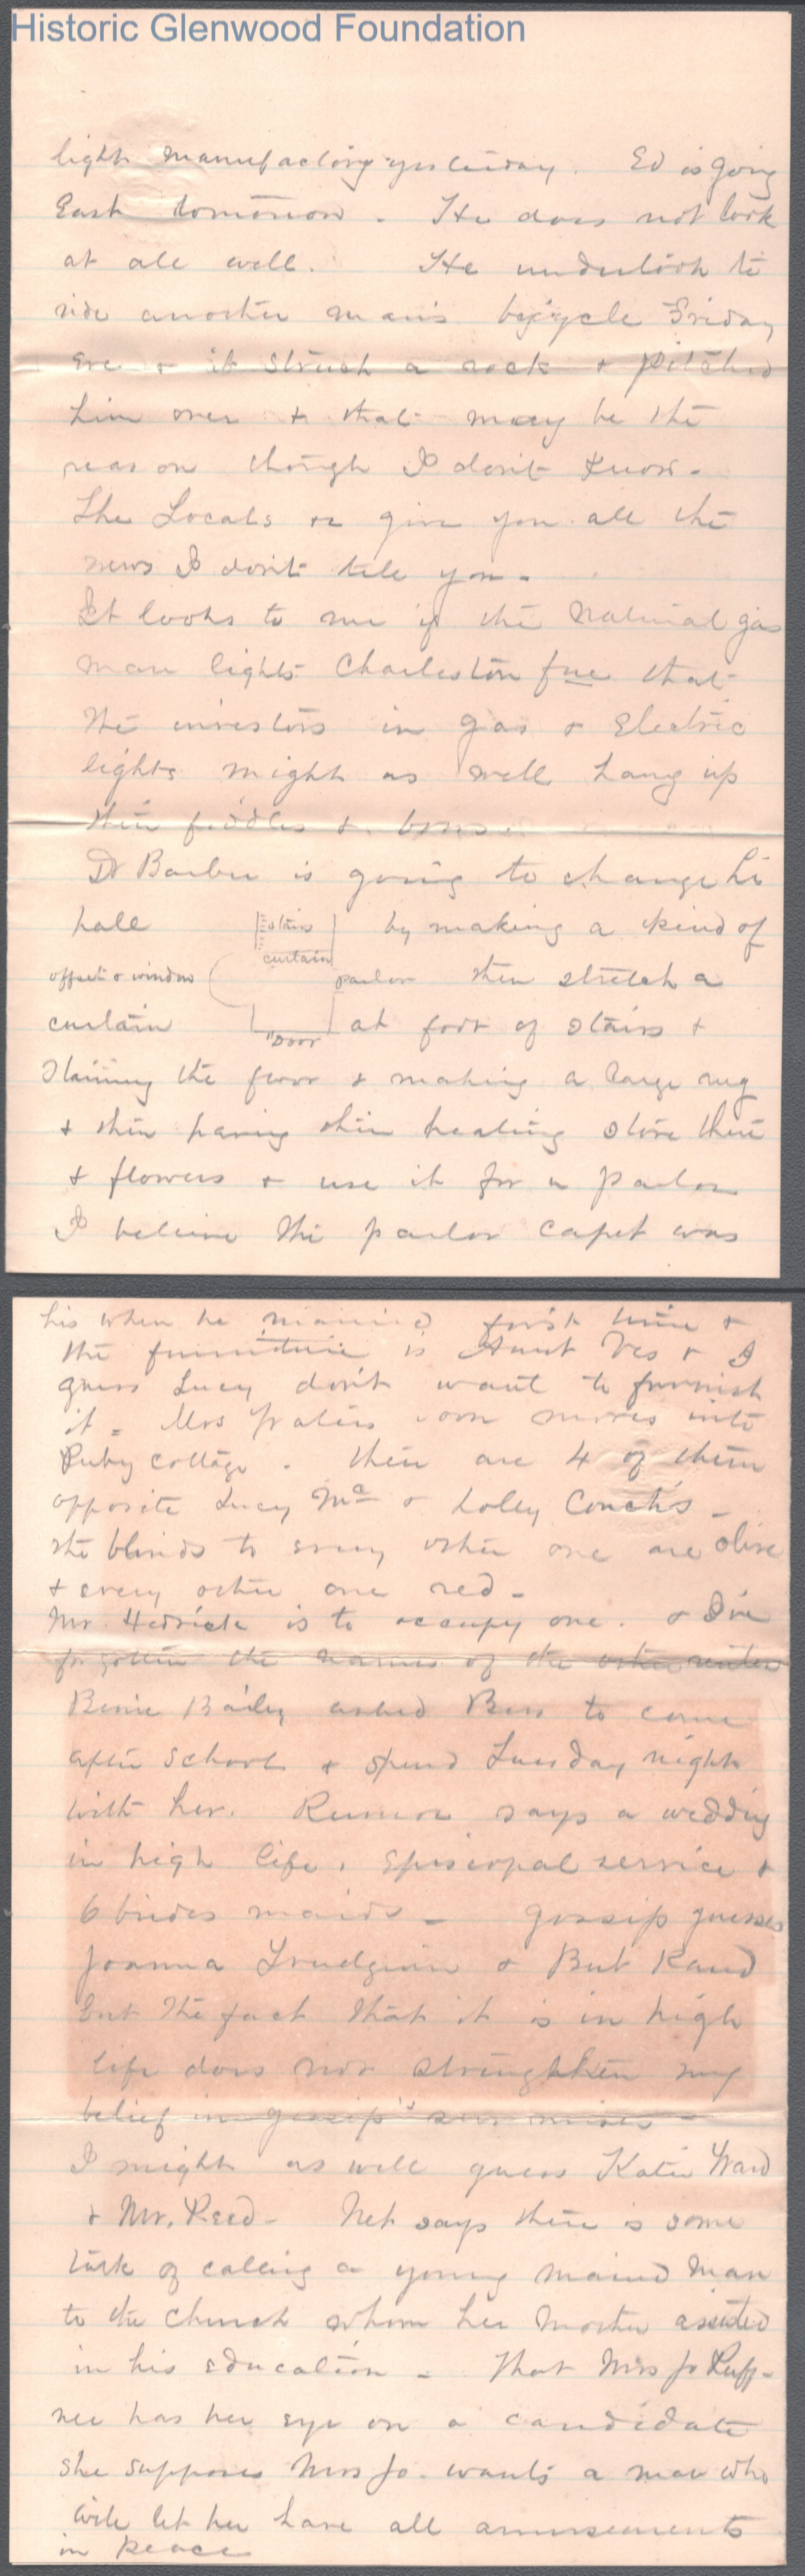 Historic Glenwood Foundation
light manufactory yesterday. Ed is going
East tomorrow. He does not look
at all well. He undertook to
ride another man's bycycle Friday
eve & it struck a rock & pitched
him over & that may be the
reason though I don't know.
The Locals give you all the
news I don't tell you.
It looks to me if the Natural gas
man lights Charleston free that
the investors in gas & Electric
lights might as well hang up
their fiddles & bows.
Dr Barber is going to change his
hall stairs by making a kind of
curtain
offset & window parlor then stretch a
curtain Door at foot of stairs &
staining the floor & making a large rug
& then having their heating stove there
& flowers & use it for a parlor
I believe the parlor capet was
his when he married first time &
the furniture is Aunt Ves & I
guess Lucy don't want to furnish
it. Mrs soon moves into
Ruby Cottage. There are 4 of them
opposite Lucy Mc & Lolly Couch's -
the blinds to every other one are olive
& every other one red -
Mr. Hedrick is to occupy one. & I've
forgotten the names of the other renters
Bessie Baily asked Bess to come
after school & spend Tuesday night
with her. Rumor says a wedding
in high life, Episcopal service &
6 brides maids - gossip guesses
Joanna Trudgian & But Rand
but the fact that it is in high
life does not strengthen my
belief in gossip's surmises -
I might as well guess Katie Ward
& Mr. Reed - Net says there is some
talk of calling a young married man
to the Church whom her Mother assisted
in his education - That Mrs Jo Ruff-
ner has her eye on a candidate
she supposes Mrs Jo. wants a man who
will let her have all amusements
in peace